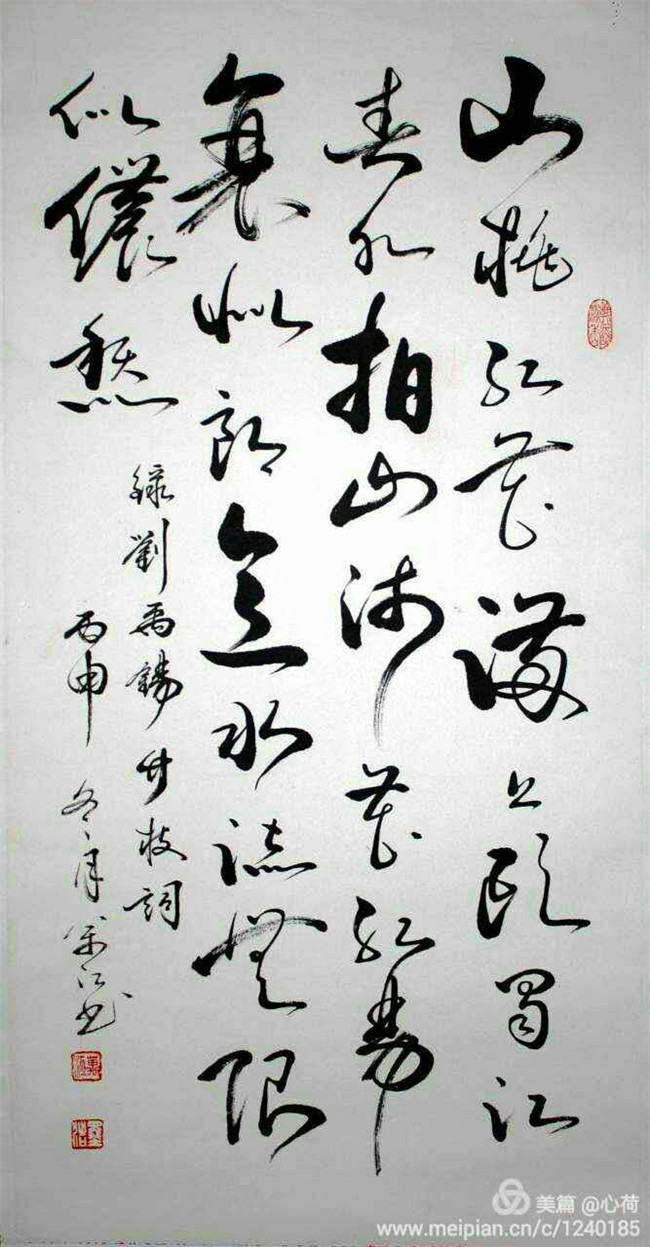 山桃红花满上頭蜀江
春水拍山流花红易
衰似郎意水流無限
似儂愁
錄劉禹錫竹枝詞
丙申冬月江书
美篇 @心荷
www.meipian.cn/c/1240185